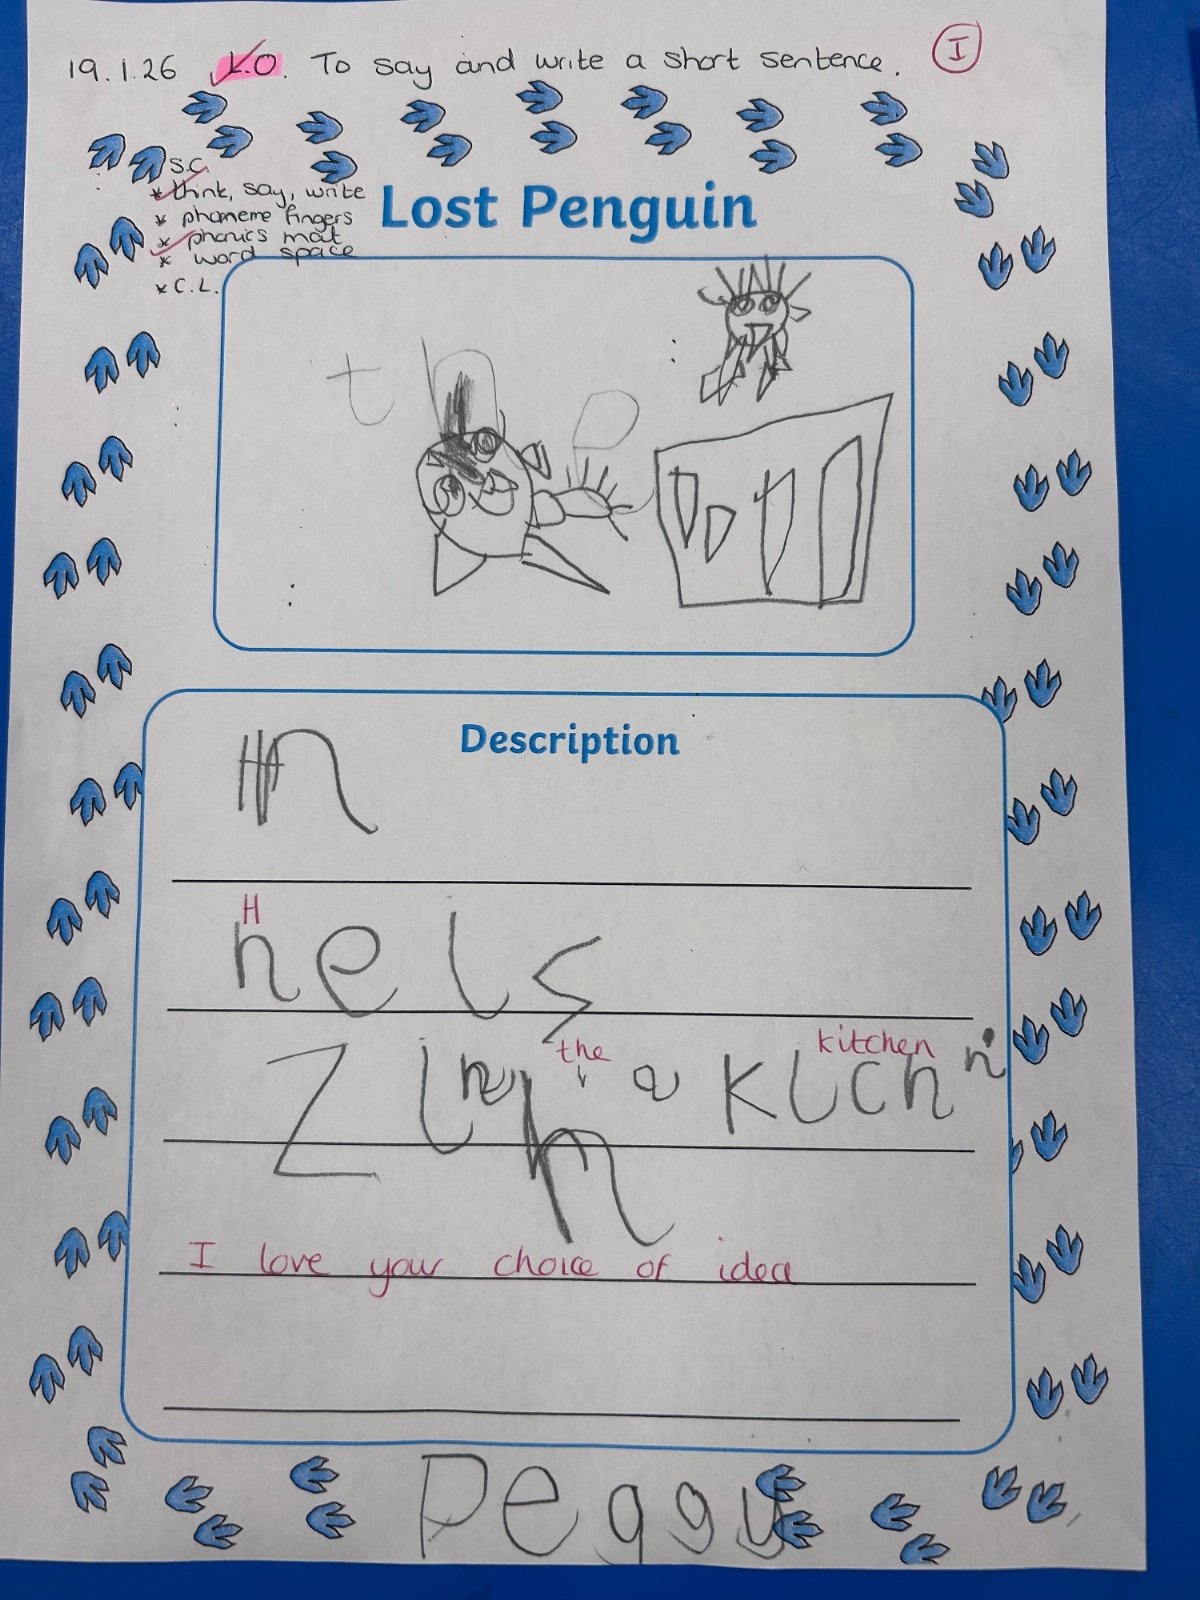 19.1.26 L.O. To say and write a short sentence. I
S.C.
* think, say, write
* phoneme fingers
* phonics mat
* word space
* C.L.
Lost Penguin
t
Description
H
hels
the kitchen
Z in a kichn
I love your choice of idea
Peggy